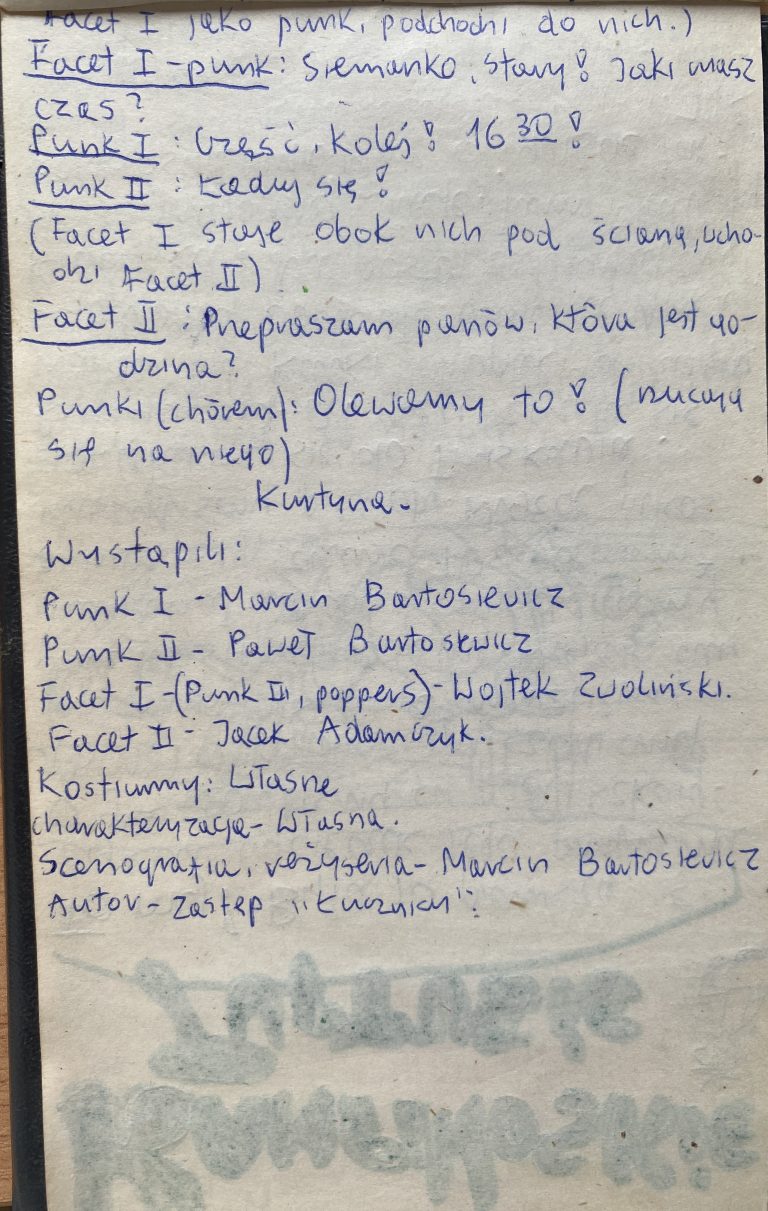 Facet I jako punk, podchodzi do nich.)
Facet I-punk: Siemanko, stary! Jaki masz
czas?
Punk I: Cześć, koleś! 16 30!
Punk II: Ładuj się!
(Facet I staje obok nich pod ścianą, wcho-
dzi Facet II)
Facet II: Przepraszam panów, która jest go-
dzina?
Punki (chórem): Olewamy to! (rzucają
się na niego)
Kurtyna.
Wystąpili:
Punk I - Marcin Bartosiewicz
Punk II - Paweł Bartosewicz
Facet I-(Punk III, poppers)-Wojtek Zwoliński.
Facet II - Jacek Adamczyk.
Kostiumy: Własne
charakteryzacja- Własna.
Scenografia, reżyseria- Marcin Bartosiewicz
Autor- zastęp "Łucznicy":